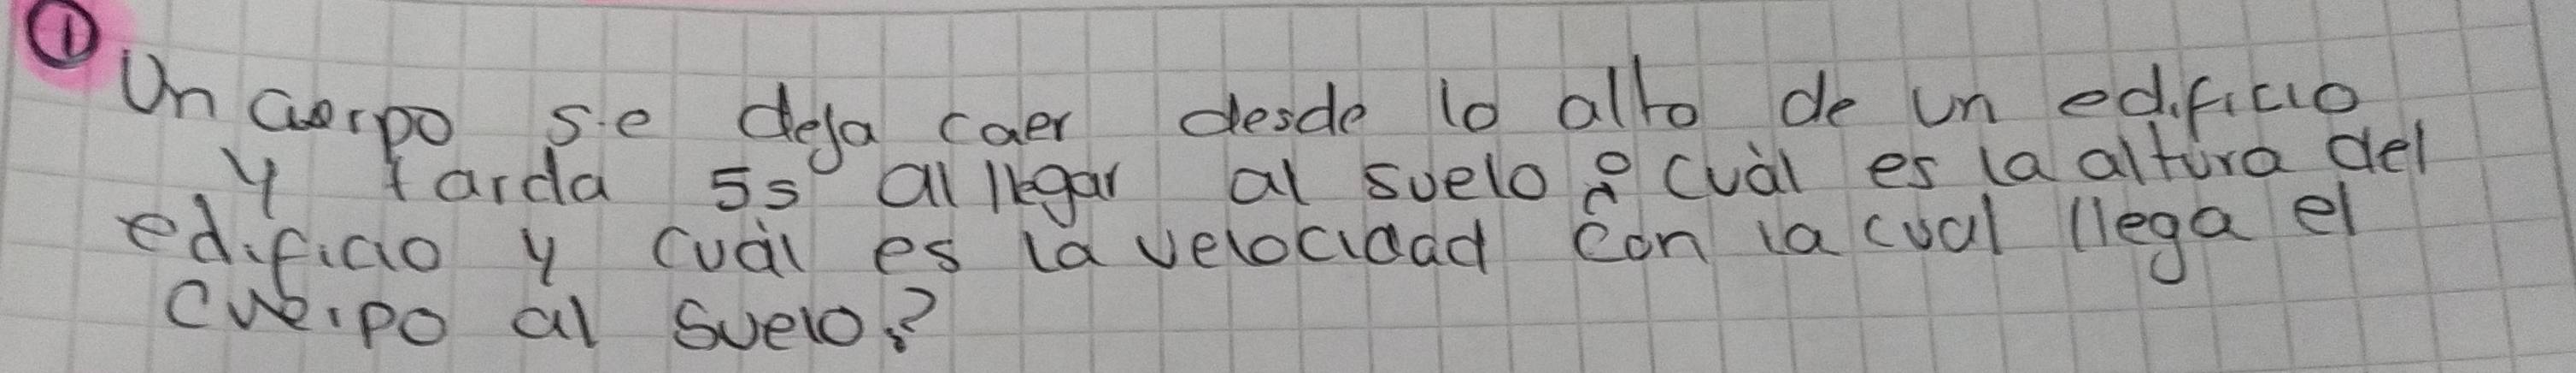 ①
Un cuerpo se deja caer desde lo alto de un edificio
y tarda 5s al llegar al suelo ¿cuàl es la altura del
edificio y cuàl es la velocidad con la cual llega el
cuerpo al suelo?